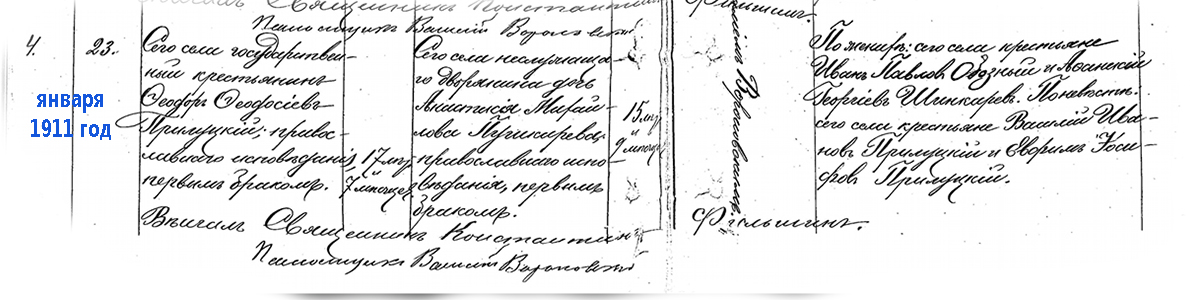 Священникъ Константинъ
Псаломщикъ Василій
4.
23.
января
1911 год
Сего села государствен-
ный крестьянинъ
Ѳеодоръ Ѳеодосіевъ
Прилуцкій; право-
славнаго исповѣданія,
первымъ бракомъ.
17 лѣтъ
и
7 мѣсяцев
Сего села неслужаща-
го дворянина дочь
Анастасія Михай-
лова Пушкарева,
православнаго испо-
вѣданія, первымъ
бракомъ.
15 лѣт
и
9 мѣсяцев
По женихѣ: сего села крестьяне
Иванъ Павловъ Обозный и Аѳанасій
Георгіевъ Шинкаревъ. По невѣстѣ:
сего села крестьяне Василій Ива-
новъ Прилуцкій и Евфимъ Іоси-
фовъ Прилуцкій.
Вѣнчалъ Священникъ Константинъ
Фильшинъ.
Псаломщикъ Василій